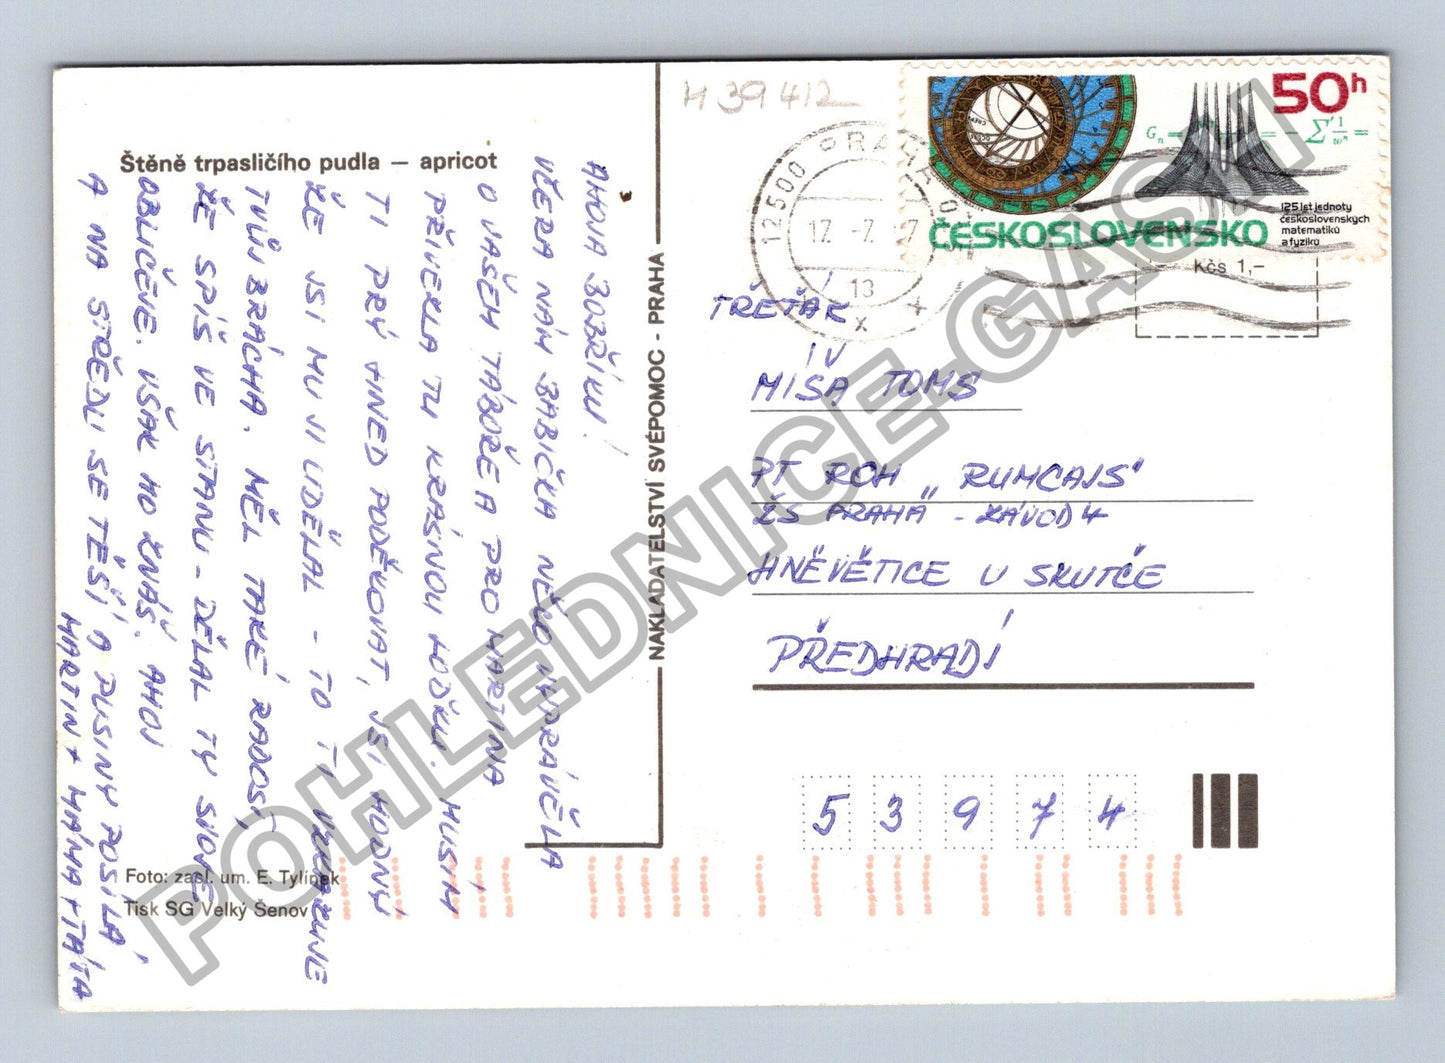 H 39 412
Štěně trpasličího pudla – apricot
AHOJ BOBŘÍKU!
VČERA NÁM BABIČKA NĚCO VYPRÁVĚLA
O VAŠEM TÁBOŘE A PRO MARTINA
PŘIVEZLA TU KRÁSNOU LODKU. MUSÍM
TI PRÝ HNED PODĚKOVAT, JSI HODNÝ
ŽE JSI MU JI UDĚLAL – TO TI VZKAZUJE
TVŮJ BRÁCHA. MĚL TAKÉ RADOST,
ŽE SPÍŠ VE STANU – DĚLAL TY SVOJE
OBLIČEJE. VŠAK HO ZNÁŠ. AHOJ
A NA STŘEDU SE TĚŠÍ A PUSINY POSÍLÁ
MARTIN + MÁMA + TÁTA
Foto: zasl. um. E. Tylínek
Tisk SG Velký Šenov
NAKLADATELSTVÍ SVÉPOMOC - PRAHA
12500 PRAHA 025
17. -7. 7
13
x 4
50h
125 let jednoty
československých
matematiků
a fyziků
ČESKOSLOVENSKO
Kčs 1,–
TŘEŤÁK
MÍŠA TOMS
PT ROH „RUMCAJS"
ZS PRAHA - ZÁVOD 4
HNĚVĚTICE U SKUTČE
PŘEDHRADÍ
5 3 9 7 4
POHLEDNICE-GASH